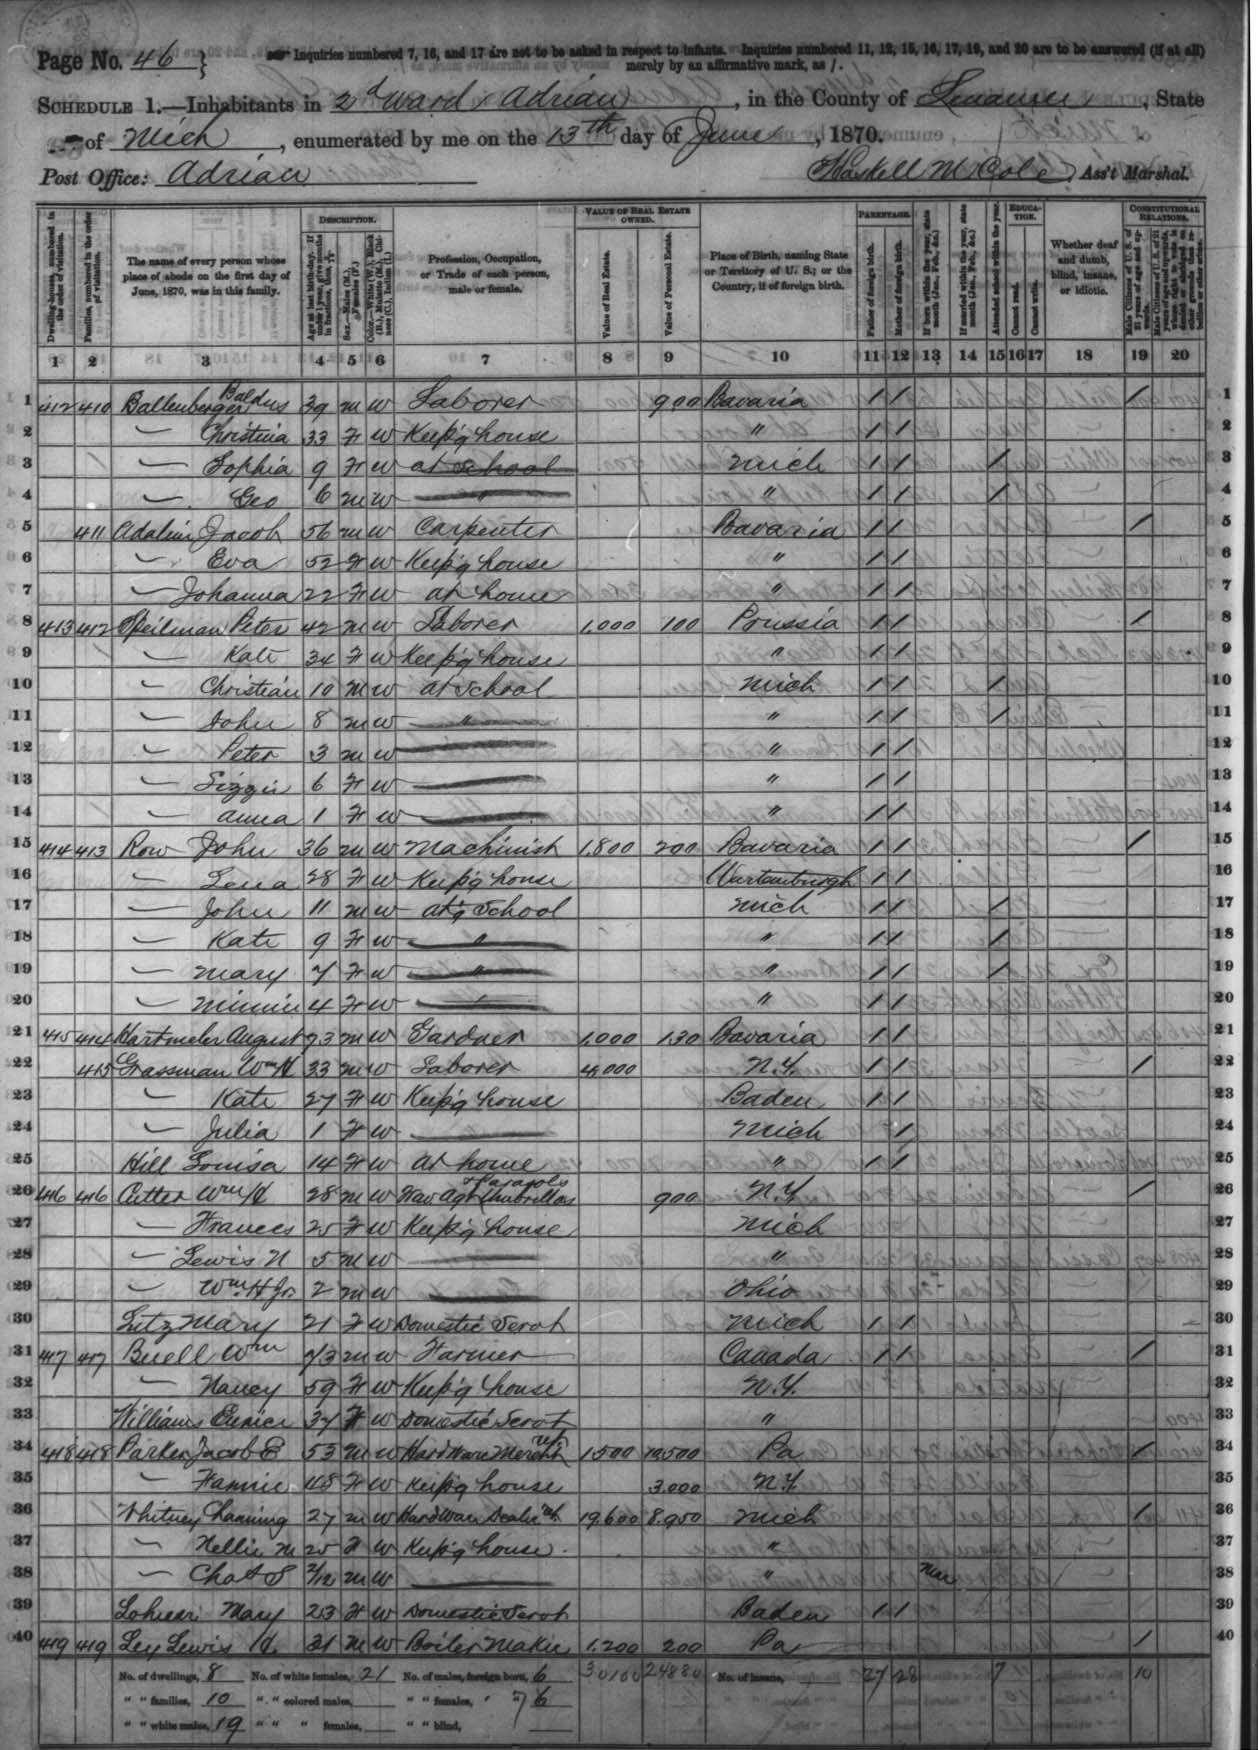 Page No. 46
Inquiries numbered 7, 16, and 17 are not to be asked in respect to infants. Inquiries numbered 11, 12, 15, 16, 17, 19, and 20 are to be answered (if at all) merely by an affirmative mark, as /.
SCHEDULE 1.—Inhabitants in 2d Ward Adrian, in the County of Lenawee, State
of Mich, enumerated by me on the 13th day of June, 1870.
Post Office: Adrian Haskell M Cole, Ass't Marshal.
Dwelling-houses, numbered in the order of visitation.
Families, numbered in the order of visitation.
The name of every person whose place of abode on the first day of June, 1870, was in this family.
DESCRIPTION.
Profession, Occupation, or Trade of each person, male or female.
VALUE OF REAL ESTATE OWNED.
Value of Real Estate.
Value of Personal Estate.
Place of Birth, naming State or Territory of U. S.; or the Country, if of foreign birth.
PARENTAGE.
Father of foreign birth.
Mother of foreign birth.
EDUCATION.
Attended school within the year.
Cannot read.
Cannot write.
Whether deaf and dumb, blind, insane, or idiotic.
CONSTITUTIONAL RELATIONS.
1 2 3 4 5 6 7 8 9 10 11 12 13 14 15 16 17 18 19 20
1 412 410 Ballenberger Baldus 39 M W Laborer 900 Bavaria / / / 1
2 — Christina 33 F W Keep'g house " / / 2
3 — Sophia 9 F W at School Mich / / / 3
4 — Geo 6 M W " " / / / 4
5 411 Jacob 56 M W Carpenter Bavaria / / / 5
6 — Eva 52 F W Keep'g house " / / 6
7 — Johanna 22 F W at home " / / 7
8 413 412 Speilman Peter 42 M W Laborer 1,000 100 Prussia / / / 8
9 — Kate 34 F W Keep'g house " / / 9
10 — Christian 10 M W at School Mich / / / 10
11 — John 8 M W " " / / / 11
12 — Peter 3 M W " / / 12
13 — Lizzie 6 F W " / / 13
14 — Anna 1 F W " / / 14
15 414 413 Row John 36 M W Machinist 1,800 200 Bavaria / / / 15
16 — Lena 28 F W Keep'g house Wurtemburgh / / 16
17 — John 11 M W at School Mich / / / 17
18 — Kate 9 F W " " / / / 18
19 — Mary 7 F W " " / / / 19
20 — Minnie 4 F W " / / 20
21 415 414 August 73 M W Gardner 1,000 130 Bavaria / / 21
22 415 Grassman Wm H 33 M W Laborer 4,000 N.Y. / / / 22
23 — Kate 27 F W Keep'g house Baden / / 23
24 — Julia 1 F W Mich / 24
25 Hill Louisa 14 F W at home " / / 25
26 416 416 Cutter Wm H 28 M W Trav Agt Umbrellas & Parasols 900 N.Y. / 26
27 — Frances 25 F W Keep'g house Mich 27
28 — Lewis N 5 M W " 28
29 — Wm H Jr. 2 M W Ohio 29
30 Lutz Mary 21 F W Domestic Servt Mich / / 30
31 417 417 Buell Wm 73 M W Farmer Canada / / / 31
32 — Nancy 59 F W Keep'g house N.Y. 32
33 Williams Eunice 34 F W Domestic Servt " 33
34 418 418 Parker Jacob E 53 M W Hardware Mercht 1500 10,500 Pa / 34
35 — Fannie 48 F W Keep'g house 3,000 N.Y. 35
36 Whitney Channing 27 M W Hardware Dealer 19,600 8,950 Mich / 36
37 — Nellie M 25 F W Keep'g house " 37
38 — Chas S 2/12 M W " Mar 38
39 Mary 23 F W Domestic Servt Baden / / 39
40 419 419 Ley Lewis 31 M W Boiler Maker 1,200 200 Pa / 40
No. of dwellings, 8 No. of white females, 21 No. of males, foreign born, 6 30100 24880 No. of insane, 27 28 7 10
" " families, 10 " " colored males, " " females, " 7 6
" " white males, 19 " " " females, " " blind,